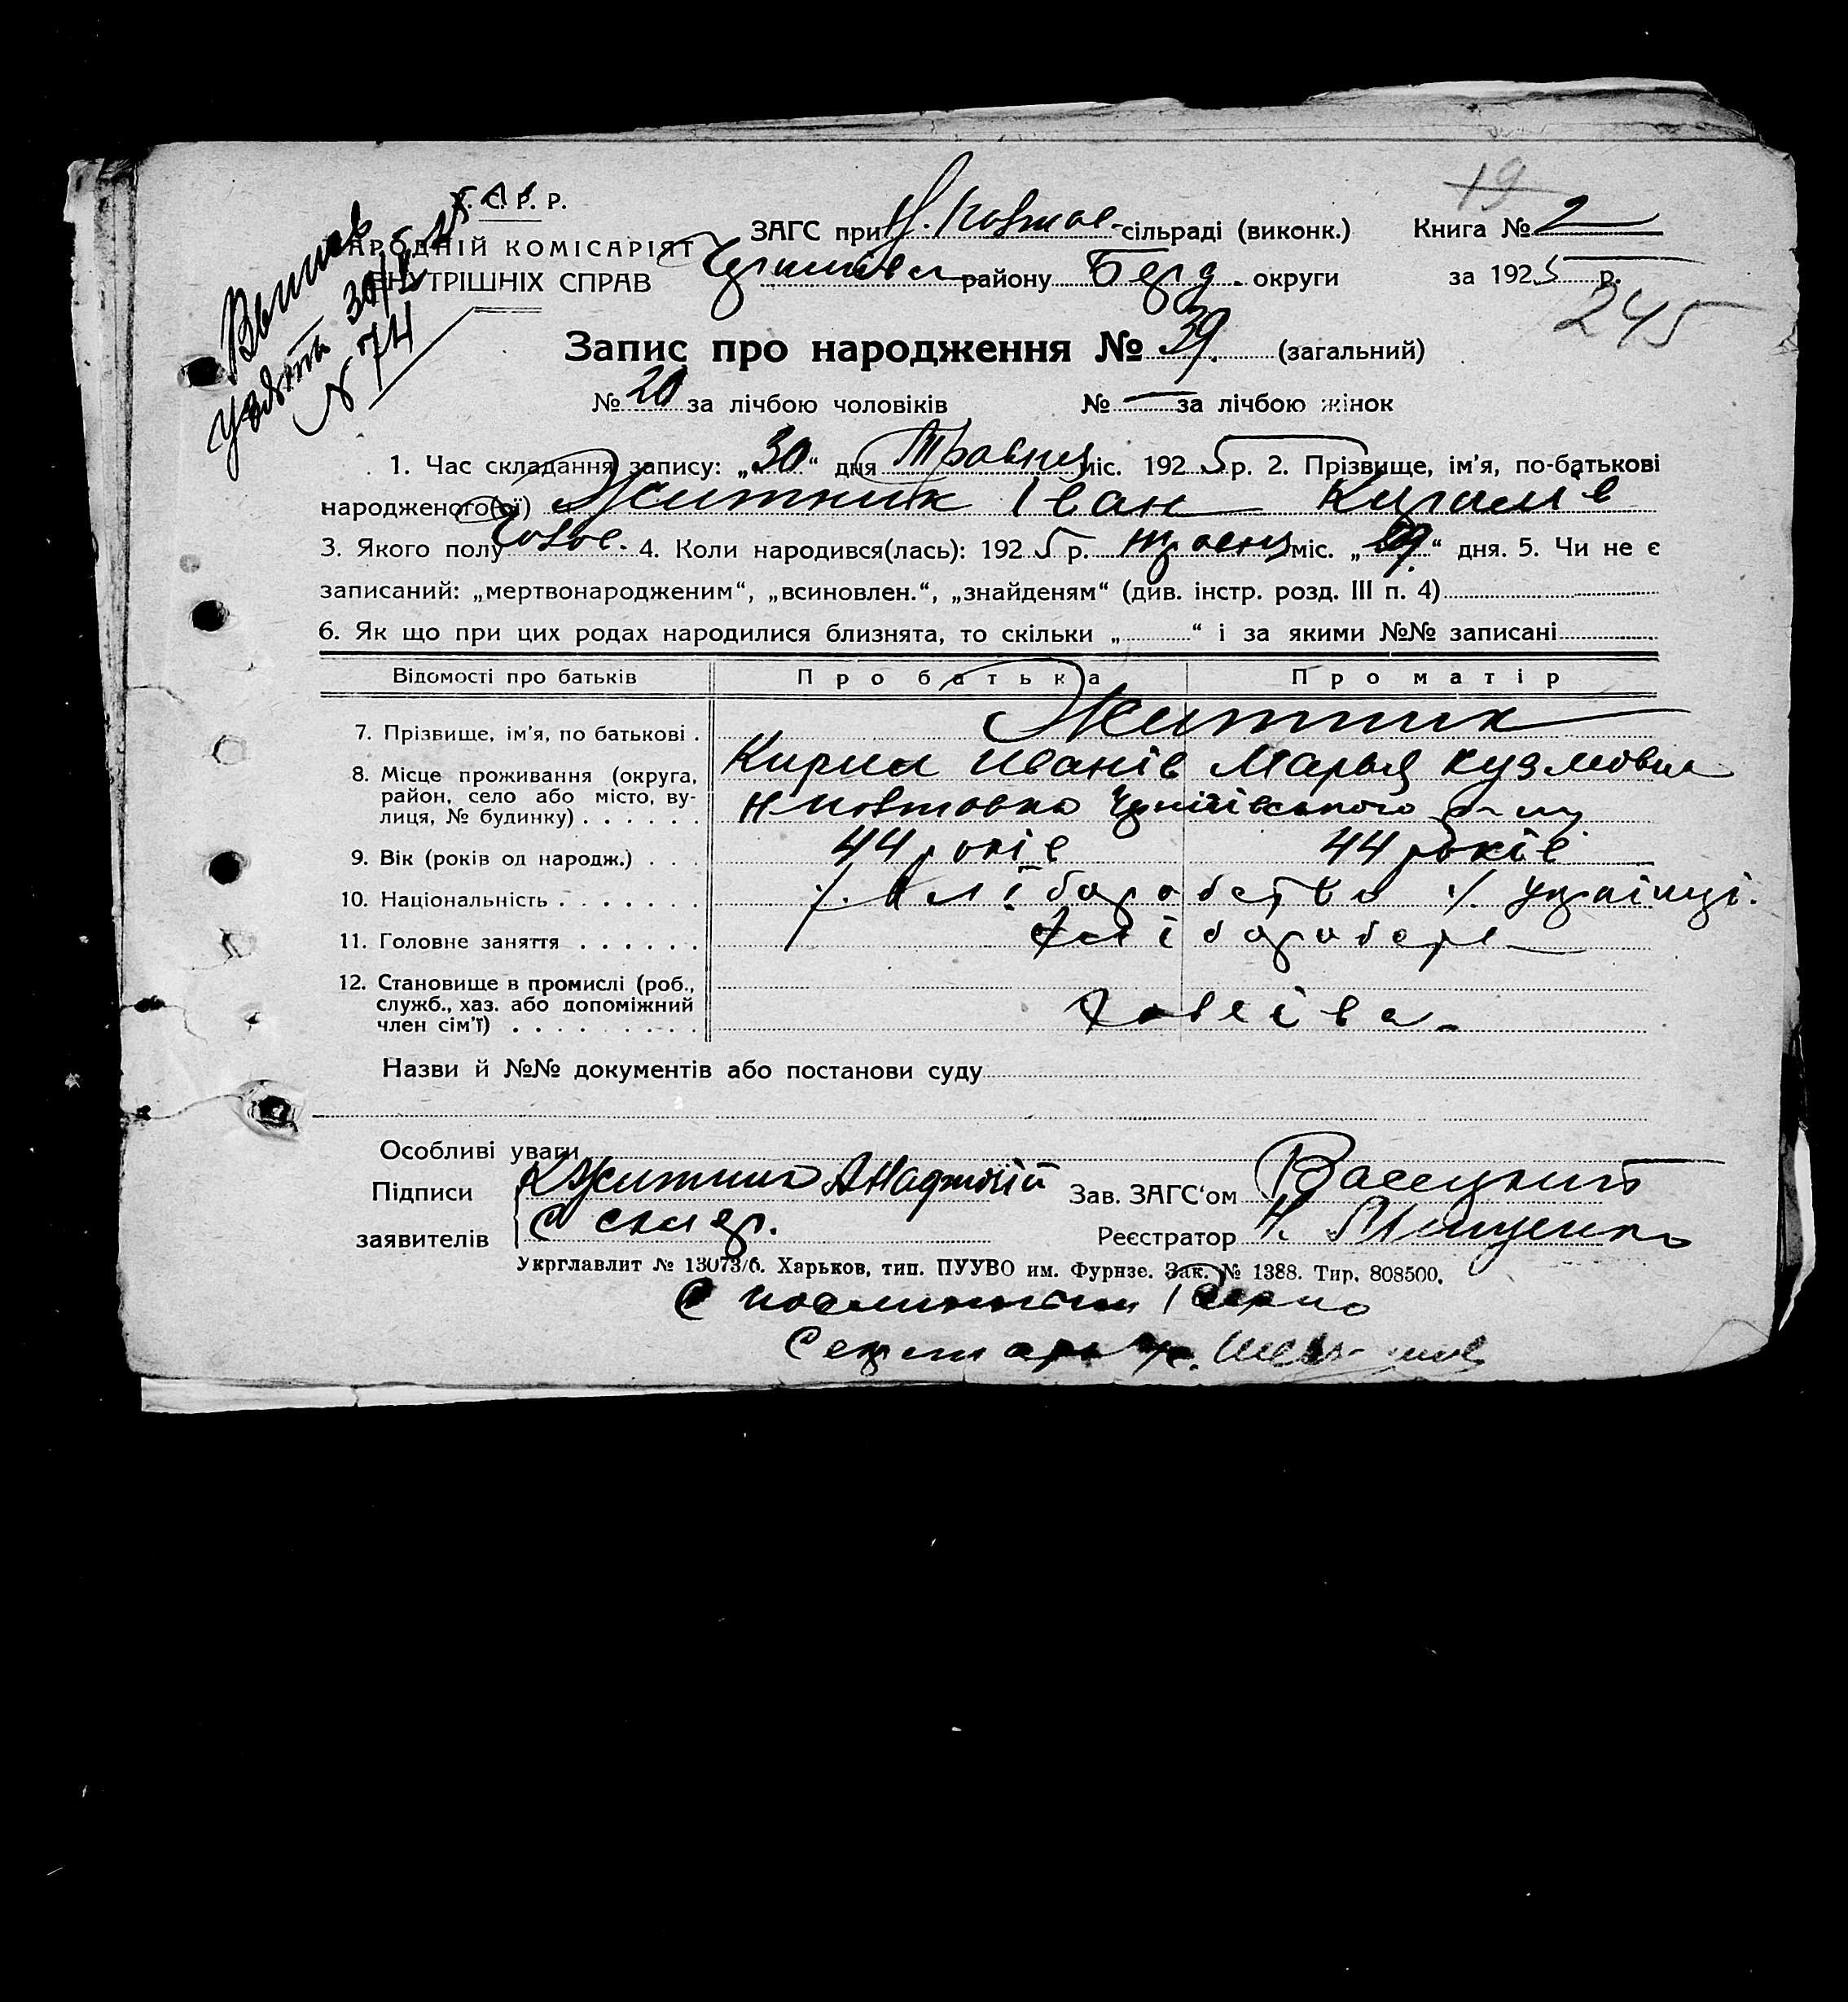 У. С. Р. Р.
НАРОДНІЙ КОМІСАРІЯТ
ВНУТРІШНІХ СПРАВ
№ 74
19
ЗАГС при сільраді (виконк.) Книга № 2
району Берд. округи за 1925 р.
245
Запис про народження № 39. (загальний)
№ 20 за лічбою чоловіків № — за лічбою жінок
1. Час складання запису: „30“ дня Травня міс. 1925 р. 2. Прізвище, ім'я, по-батькові
народженого(ої) Житник Іван Кирилів
3. Якого полу Чолов. 4. Коли народився(лась): 1925 р. травня міс. „29.“ дня. 5. Чи не є
записаний: „мертвонародженим“, „всиновлен.“, „знайденям“ (див. інстр. розд. III п. 4)
6. Як що при цих родах народилися близнята, то скільки „ “ і за якими №№ записані
Відомості про батьків Про батька Про матір
7. Прізвище, ім'я, по батькові . Житник
Кирил Иванів Марья Кузмовна
8. Місце проживання (округа,
район, село або місто, ву-
лиця, № будинку) . . . . . .
9. Вік (років од народж.) . . . 44 років 44 років
10. Національність . . . . . . . Українці.
11. Головне заняття . . . . . . Хліборобст
12. Становище в промислі (роб.,
служб., хаз. або допоміжний
член сім'ї) . . . . . . . . .
Назви й №№ документів або постанови суду
Особливі уваги
Підписи К Житник Зав. ЗАГС'ом Васецкий
заявителів Реєстратор Н. Мищенко
Укрглавлит № 13073/6. Харьков, тип. ПУУВО им. Фурнзе. Зак. № 1388. Тир. 808500.
С подлинным верно
Секретарь